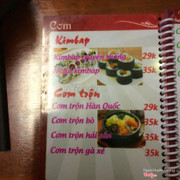 Cơm
Kimbap
Kimbap truyền thống 29k
kimbap 35k
Cơm trộn
Cơm trộn Hàn Quốc 29k
Cơm trộn bò 35k
Cơm trộn hải sản 35k
Cơm trộn gà xé 35k